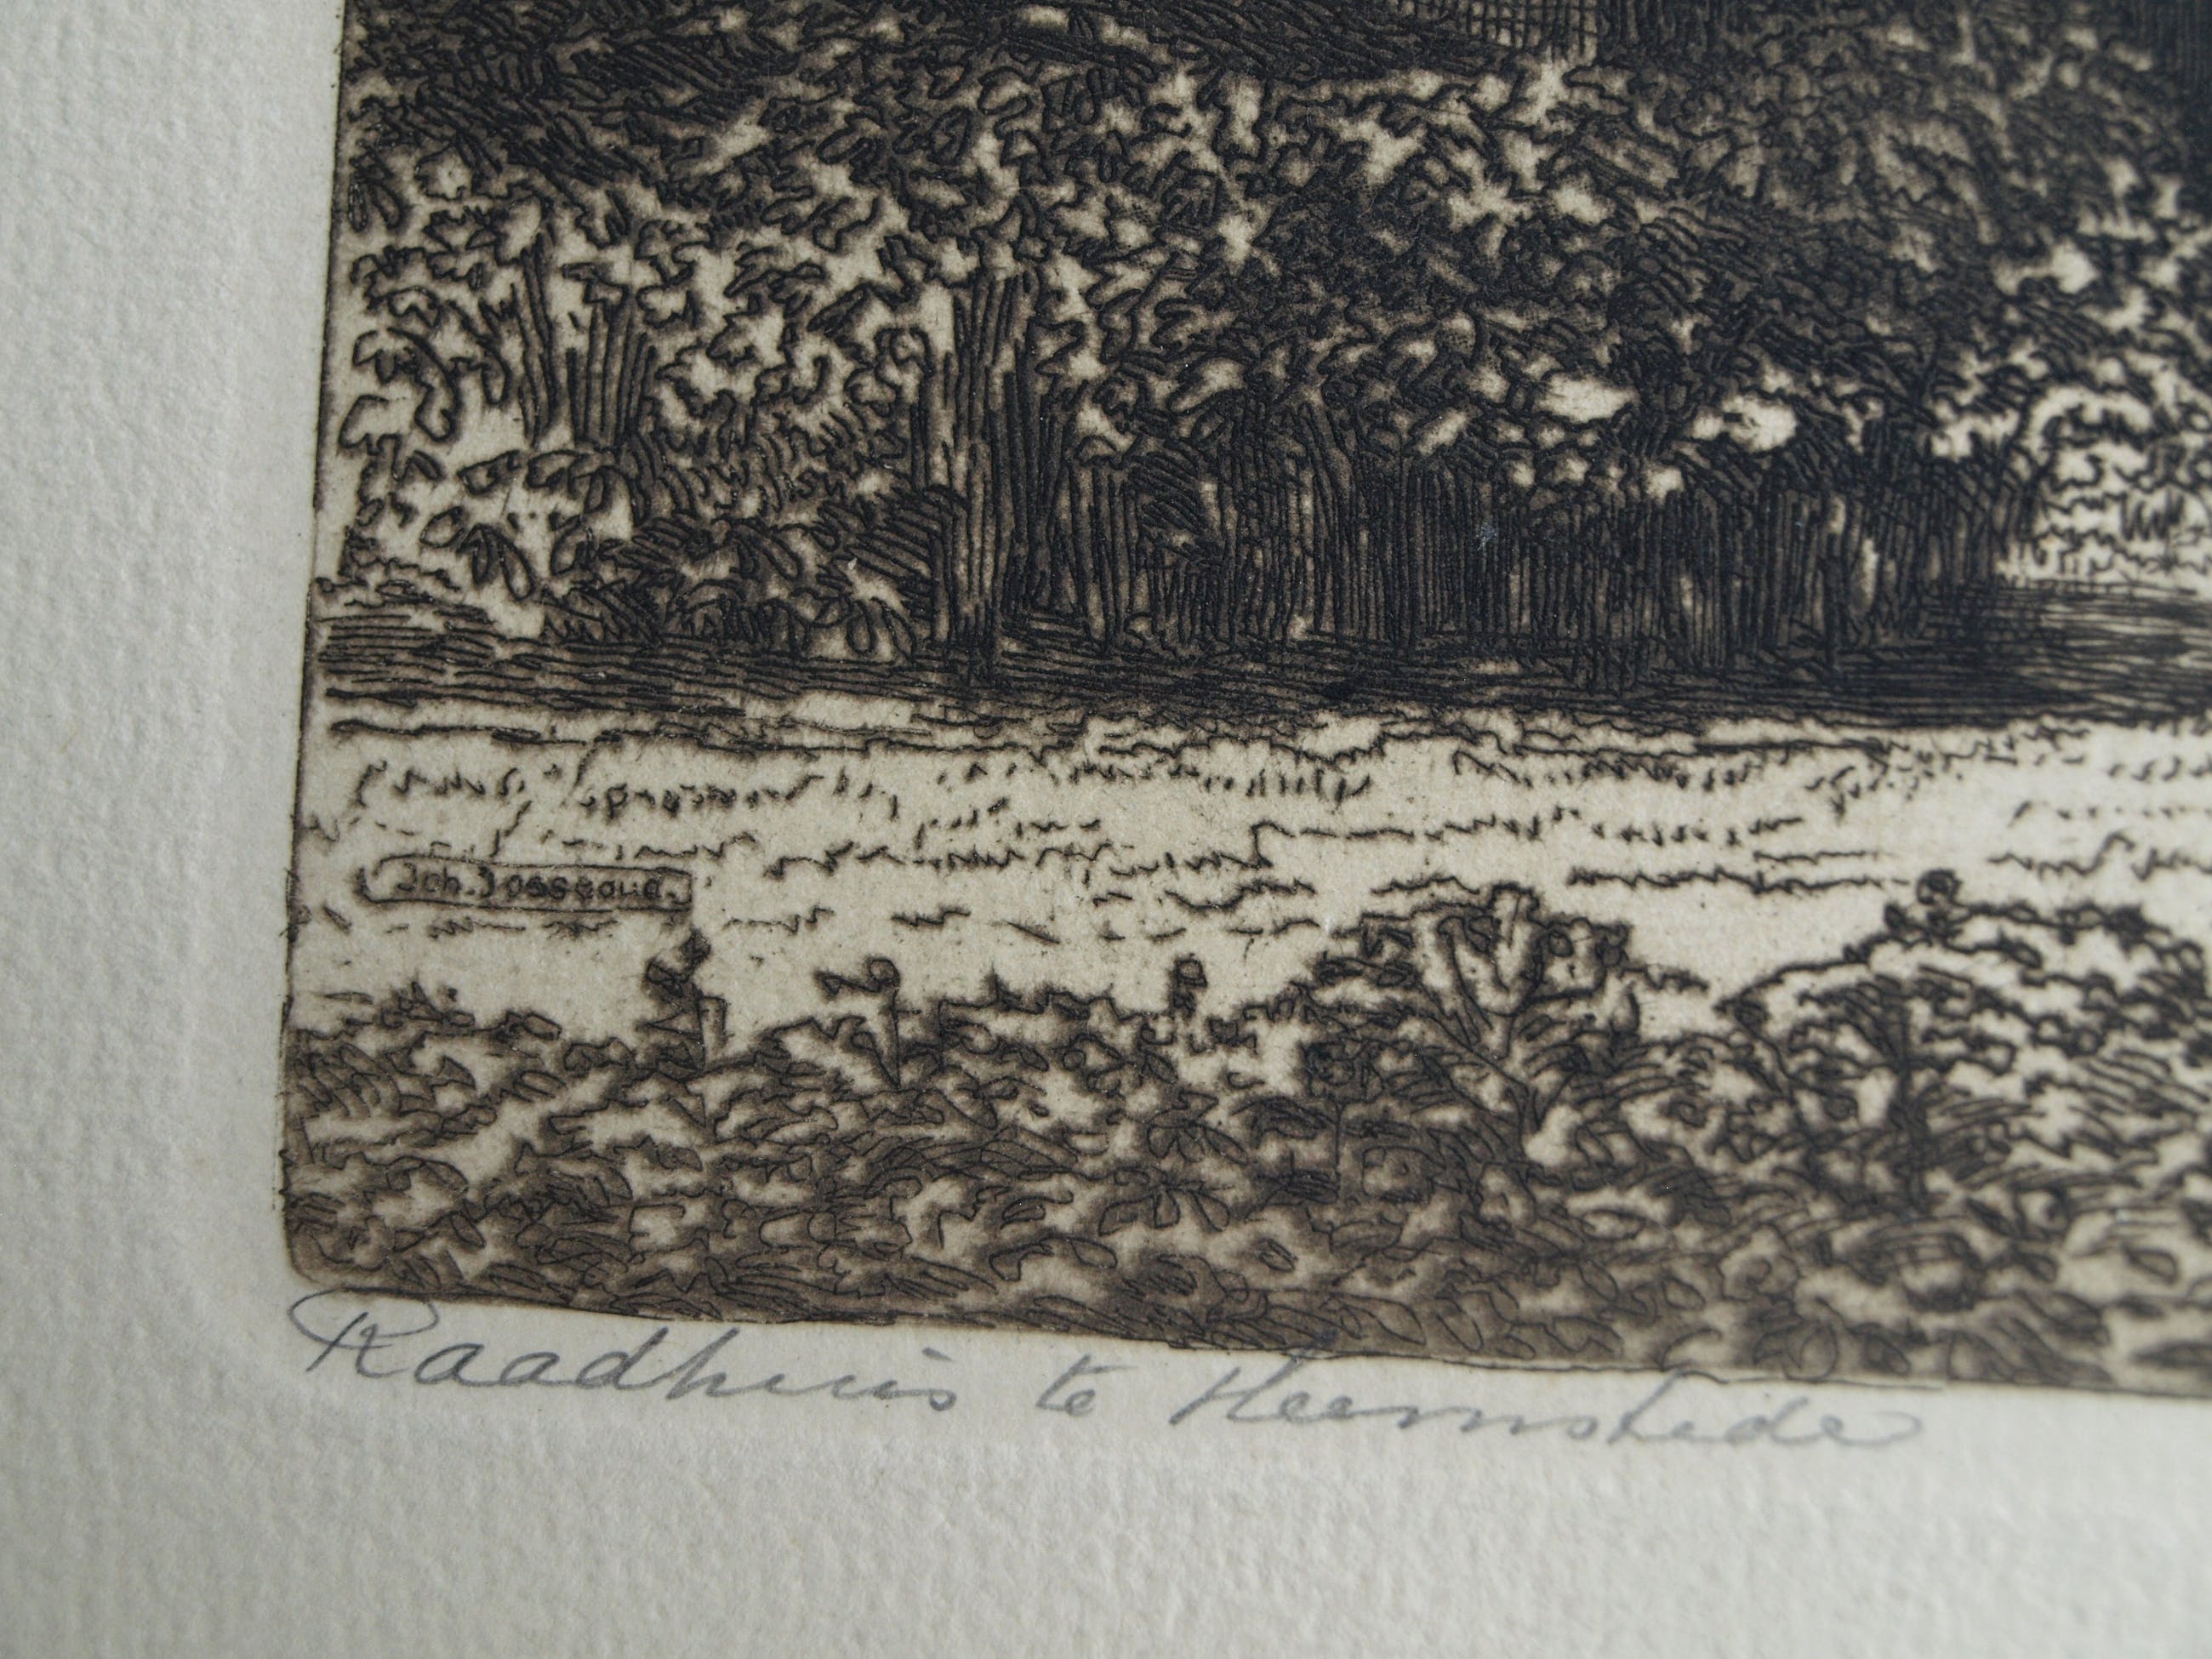 Joh. Josseaud.
Raadhuis te Heemstede